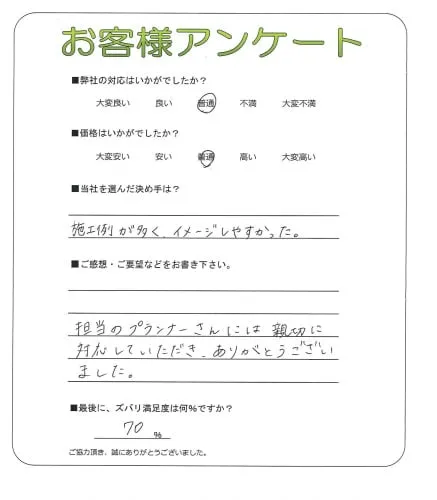 お客様アンケート
■弊社の対応はいかがでしたか？
大変良い 良い 普通 不満 大変不満
■価格はいかがでしたか？
大変安い 安い 普通 高い 大変高い
■当社を選んだ決め手は？
施工例が多く、イメージしやすかった。
■ご感想・ご要望などをお書き下さい。
担当のプランナーさんには 親切に
対応していただき、ありがとうござい
ました。
■最後に、ズバリ満足度は何％ですか？
70 ％
ご協力頂き、誠にありがとうございました。